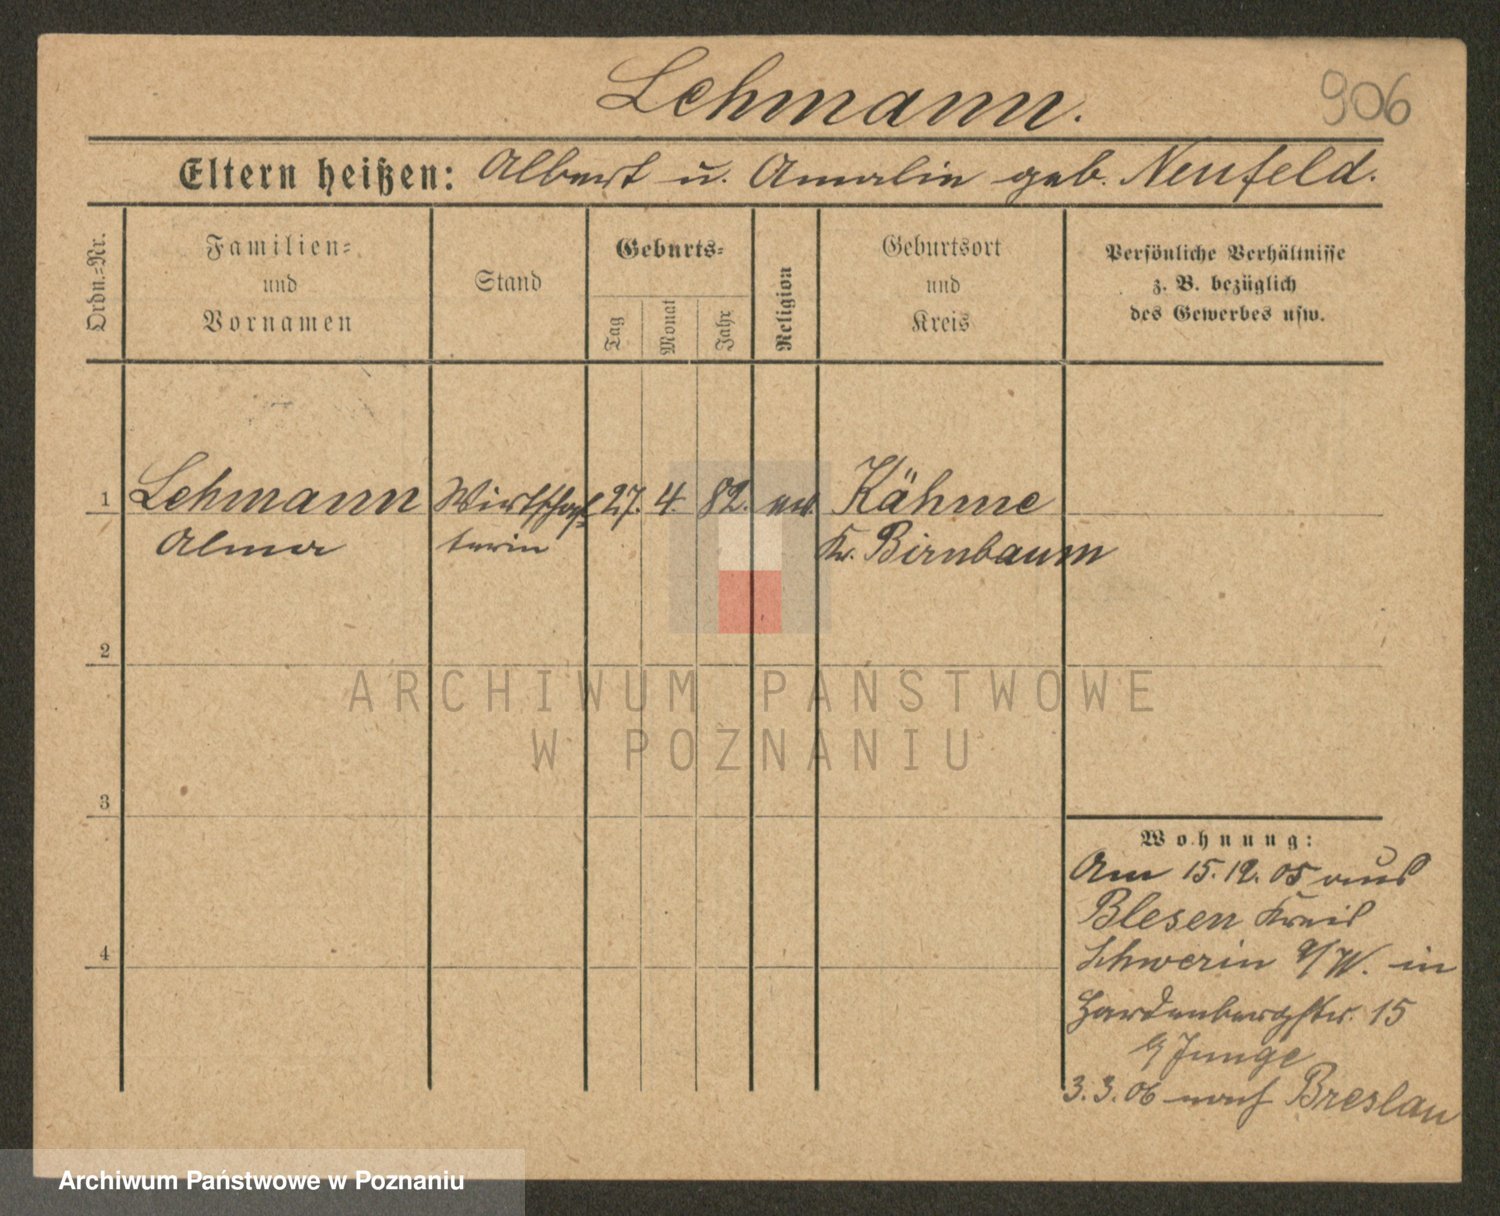 Lehmann.
906
Eltern heißen: Albert u. Amalie geb. Neufeld.
Ordn.=Nr.
Familien=
und
Vornamen
Stand
Geburts=
Tag
Monat
Jahr
Religion
Geburtsort
und
Kreis
Persönliche Verhältnisse
z. B. bezüglich
des Gewerbes usw.
1 Lehmann Wirthschaf= 27. 4. 82. ev. Kähme
Alma terin Kr. Birnbaum
2
ARCHIWUM PAŃSTWOWE
W POZNANIU
3
Wohnung:
Am 15.12.05 aus
Blesen Kreis
4
Schwerin a/W. in
Hardenbergstr. 15
b/ Junge
3.3.06 nach Breslau
Archiwum Państwowe w Poznaniu